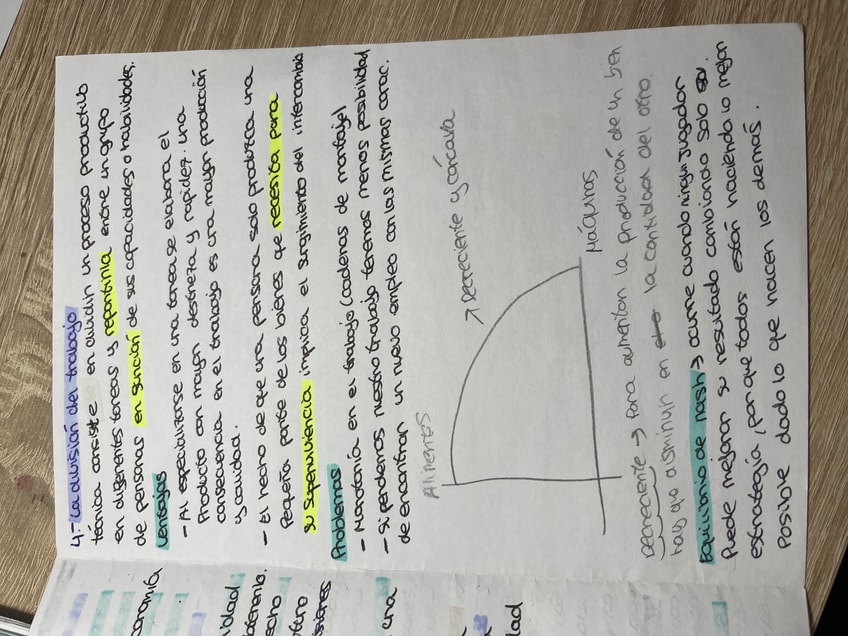 4.- La división del trabajo
técnica consiste en dividir un proceso productivo
en diferentes tareas y repartirla entre un grupo
de personas en función de sus capacidades o habilidades.
Ventajas
- Al especializarse en una tarea se elabora el
Producto con mayor destreza y rapidez. una
consecuencia en el trabajo es una mayor producción
y calidad.
- El hecho de que una persona solo produzca una
Pequeña parte de los bienes que necesita para
su supervivencia implica el surgimiento del intercambio
Problemas
- Monotonía en el trabajo (cadenas de montaje)
- Si perdemos nuestro trabajo tenemos menos posibilidad
de encontrar un nuevo empleo con las mismas carac.
Alimentos
→ Decreciente y cóncava
Máquinas
Decreciente → Para aumentar la producción de un bien
hay que disminuir en la cantidad del otro.
Equilibrio de Nash → ocurre cuando ningún jugador
Puede mejorar su resultado cambiando solo su
estrategia, porque todos están haciendo lo mejor
Posible dado lo que hacen los demás.